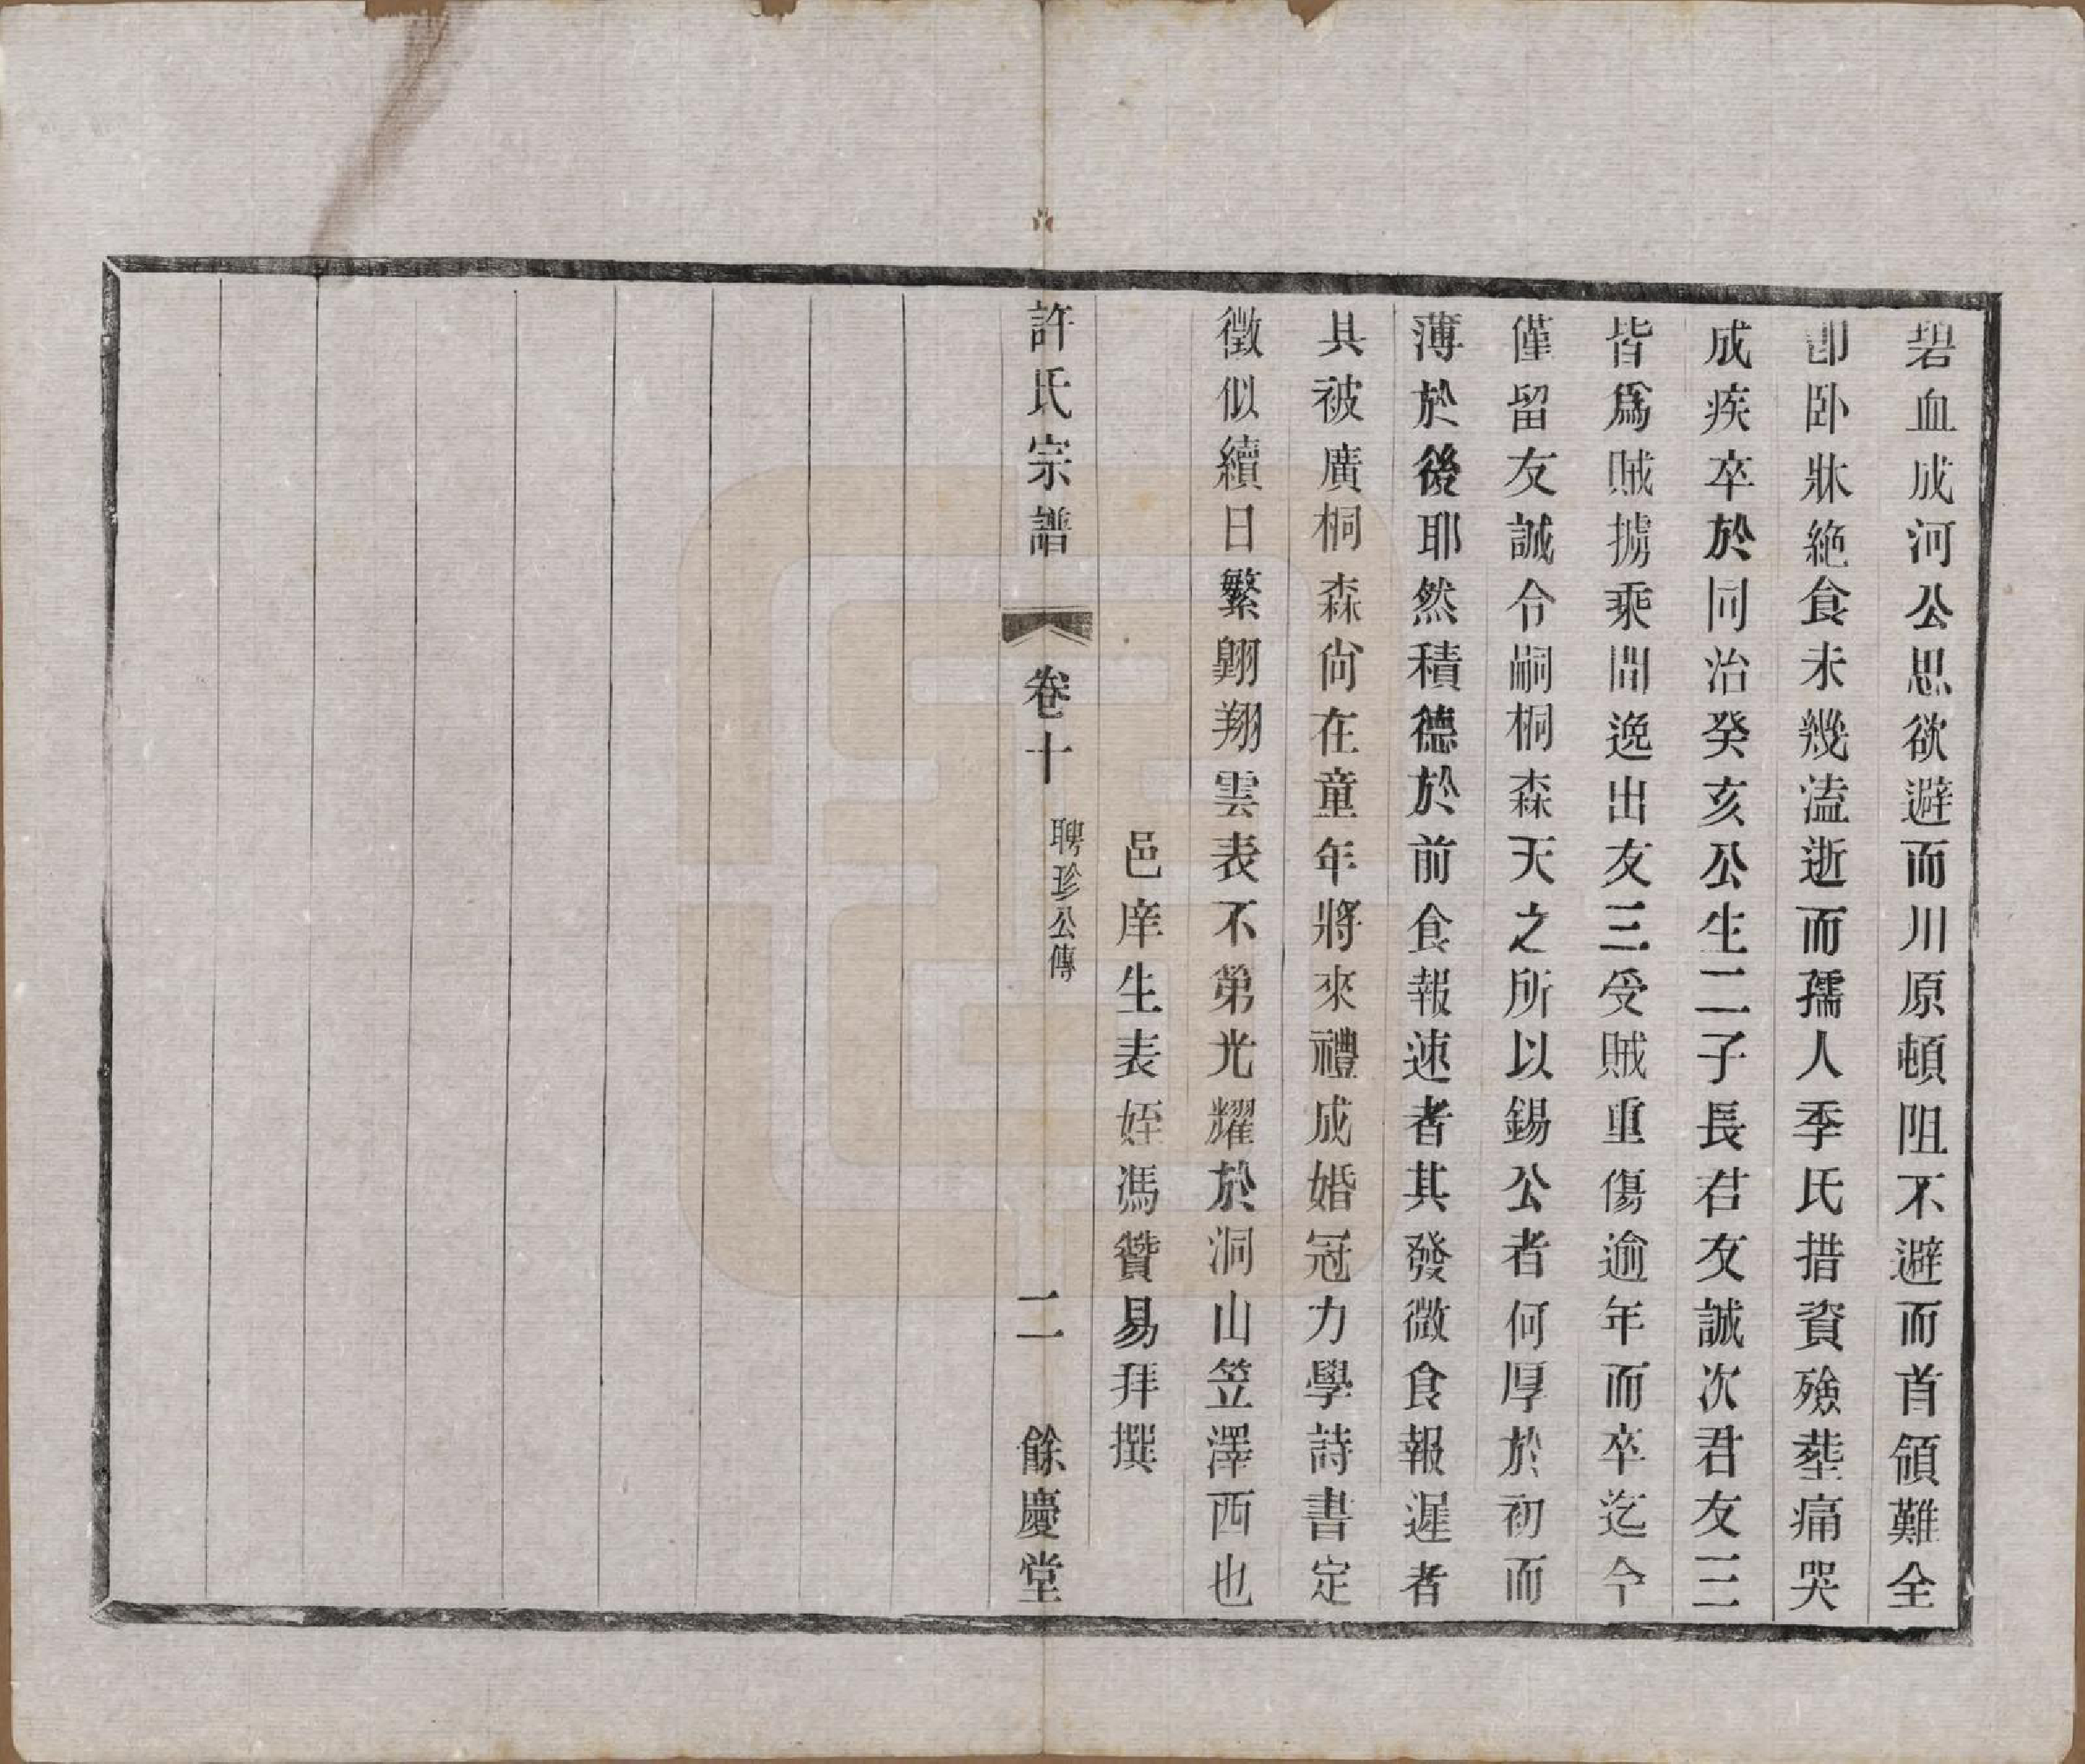 碧血成河公思欲避而川原頓阻不避而首領難全
卽卧牀絶食未幾溘逝而孺人季氏措資殮塟痛哭
成疾卒於同治癸亥公生二子長君友誠次君友三
皆爲賊擄乘間逸出友三受賊重傷逾年而卒迄今
僅留友誠令嗣桐森天之所以錫公者何厚於初而
薄於後耶然積德於前食報速者其發微食報遲者
其被廣桐森尙在童年將來禮成婚冠力學詩書定
徵似續日繁翺翔雲表不第光耀於洞山笠澤西也
邑庠生表姪馮贊易拜撰
許氏宗譜
卷十
聘珍公傳
二
餘慶堂